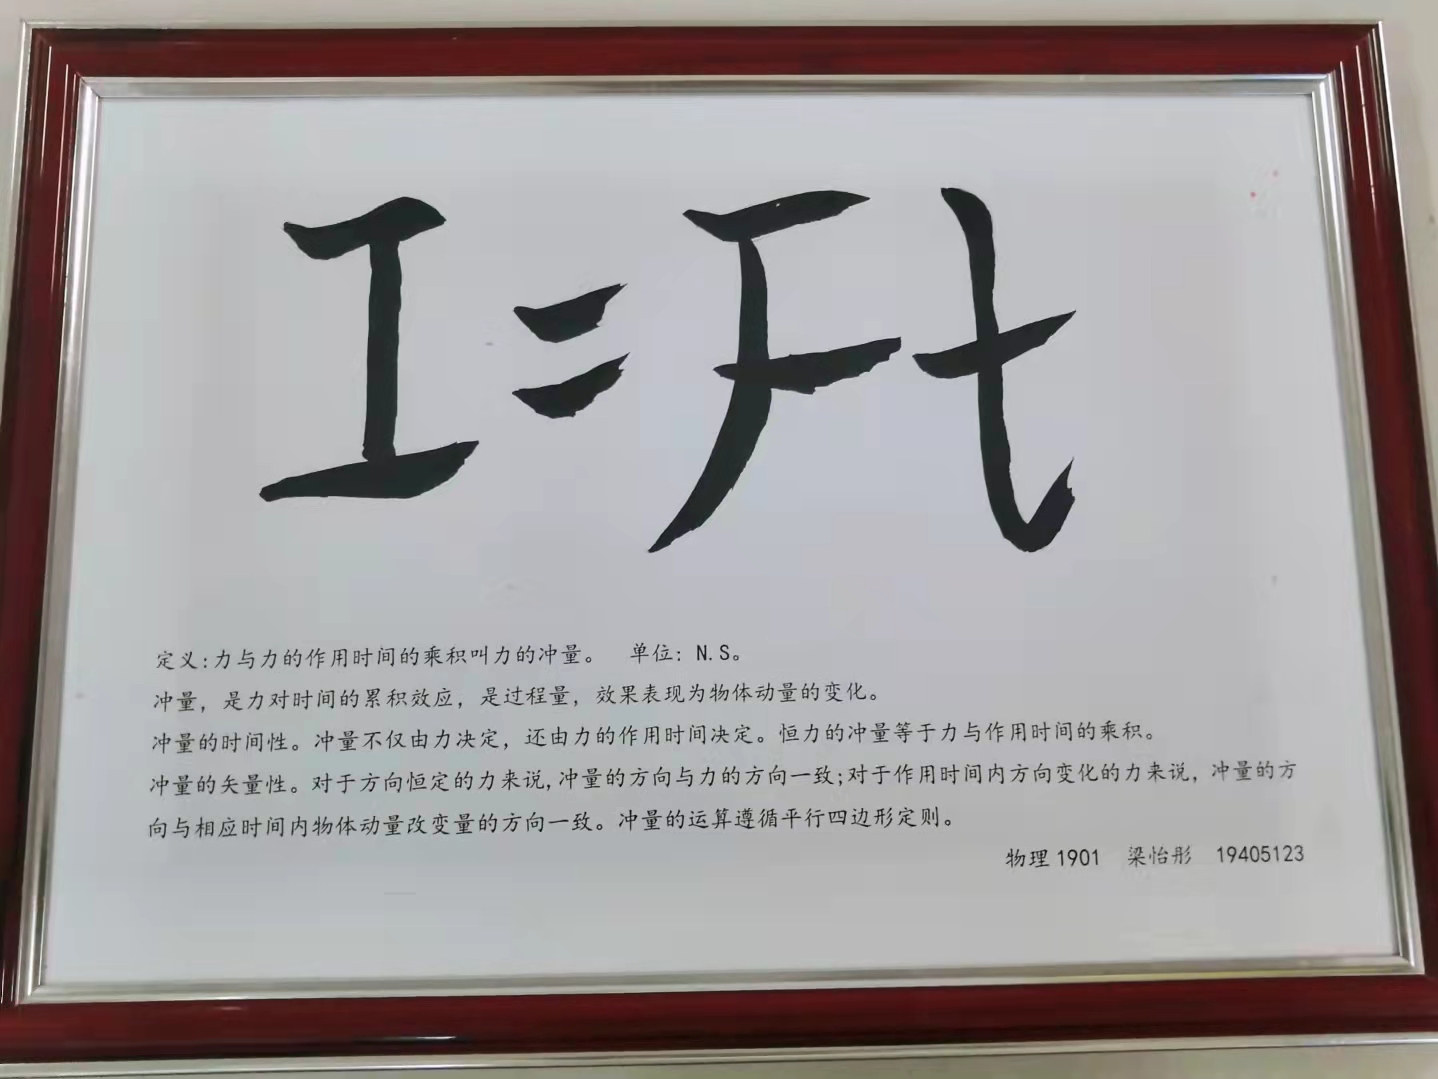 I=Ft
定义:力与力的作用时间的乘积叫力的冲量。 单位: N.S。
冲量，是力对时间的累积效应，是过程量，效果表现为物体动量的变化。
冲量的时间性。冲量不仅由力决定，还由力的作用时间决定。恒力的冲量等于力与作用时间的乘积。
冲量的矢量性。对于方向恒定的力来说,冲量的方向与力的方向一致;对于作用时间内方向变化的力来说，冲量的方
向与相应时间内物体动量改变量的方向一致。冲量的运算遵循平行四边形定则。
物理1901 梁怡彤 19405123